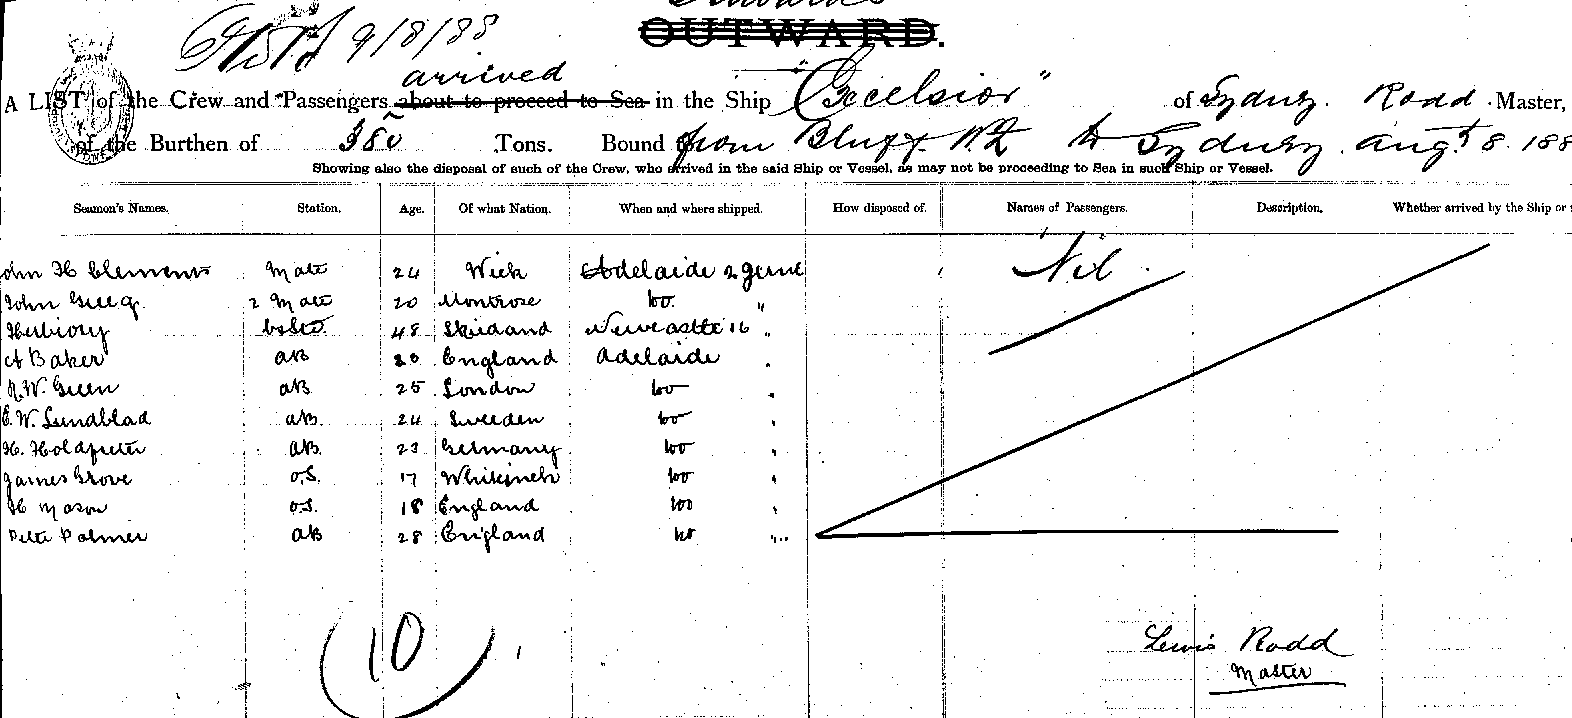 OUTWARD.
9/8/88
arrived
A LIST of the Crew and Passengers about to proceed to Sea in the Ship "Excelsior" of Sydney. Rodd Master,
of the Burthen of 380 Tons. Bound from Bluff NZ to Sydney. Augst 8. 188
Showing also the disposal of such of the Crew, who arrived in the said Ship or Vessel, as may not be proceeding to Sea in such Ship or Vessel.
Seamen's Names. Station. Age. Of what Nation. When and where shipped. How disposed of. Names of Passengers. Description. Whether arrived by the Ship or
ohn H Clements Mate 24 Wick Adelaide 2 June Nil
John 2 Mate 20 Montrose Do. "
48 Newcastle 16 "
A Baker AB 20 England Adelaide "
R.W. Green AB 25 London Do "
E.W. Lundblad AB. 24 Sweden Do "
H. Holdfreter AB. 23 Germany Do "
James Grove O.S. 17 Do "
H Mason O.S. 18 England Do "
Peter Palmer AB 28 England Do "
10
Lewis Rodd
Master